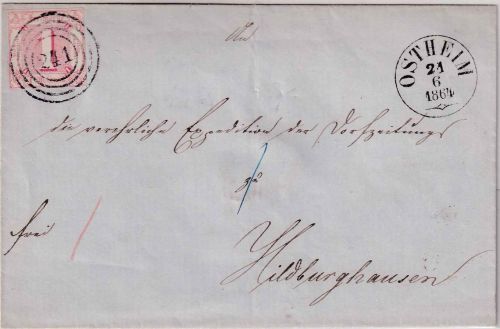 1
241
An
OSTHEIM
21
6
1864
die verehrliche Expedition der Dorfzeitung
zu
frei
Hildburghausen